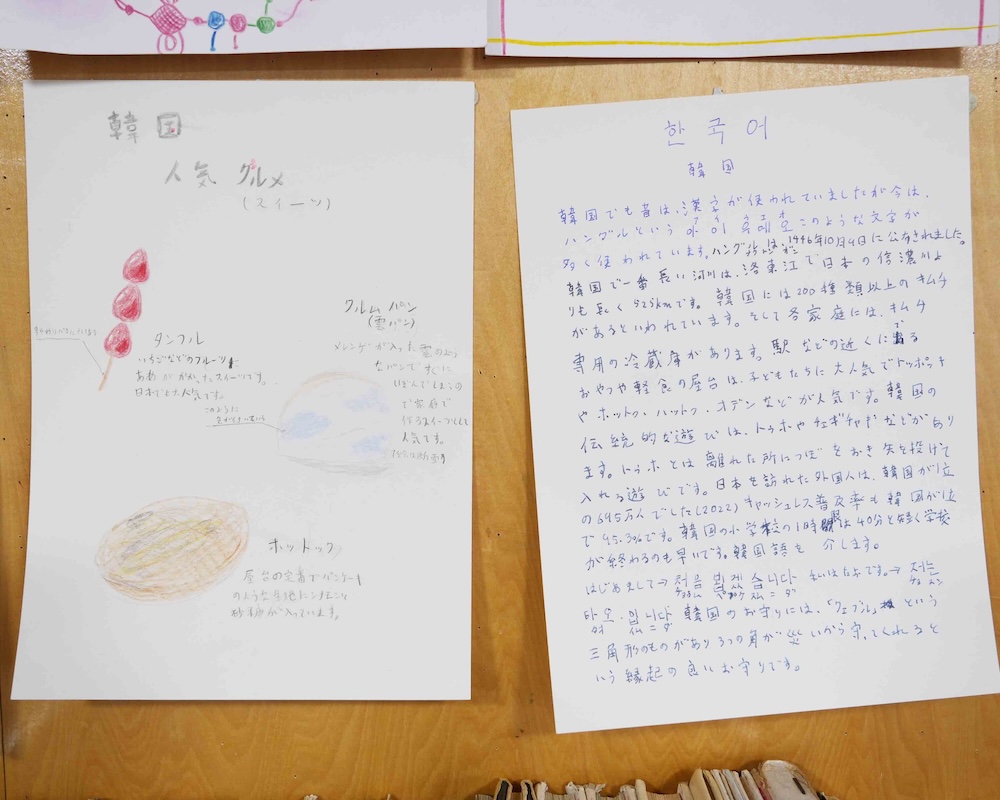 韓国
人気グルメ
(スイーツ)
タンフル
いちごなどのフルーツに
あめがかかったスイーツです。
日本でも大人気です。
このように
クルムパン
(雲パン)
メレンゲが入った雲のよう
なパンですぐに
しぼんでしまうの
で家庭で
作るスイーツとして
人気です。
ホットック
屋台の定番でパンケーキ
のような生地にシナモンと
砂糖が入っています。
한국어
韓国
韓国でも昔は、漢字が使われていましたが今は、
ハングルという 아 이 우 에 오 このような文字が
多く使われています。ハングルは、1446年10月9日に公布されました。
韓国で一番長い河川は、洛東江で日本の信濃川よ
りも長く525kmです。韓国には200種類以上のキムチ
があるといわれています。そして各家庭には、キムチ
専用の冷蔵庫があります。駅などの近くにある
おやつや軽食の屋台は、子どもたちに大人気でトッポッキ
やホットク・ハットク・オデンなどが人気です。韓国の
伝統的な遊びは、トゥホやチェギチャギなどがあり
ます。トゥホとは離れた所につぼをおき矢を投げて
入れる遊びです。日本を訪れた外国人は、韓国が1位
の645万人でした(2022)キャッシュレス普及率も韓国が1位
で95.3%です。韓国の小学校の1時限は40分と短く学校
が終わるのも早いです。韓国語を 介します。
はじめまして→ 처음 뵙겠습니다 私はたおです。→ 저는
타오 입니다 韓国のお守りには、「クェブル」という
三角形のものがあり3つの角が災いから守ってくれると
いう縁起の良いお守りです。